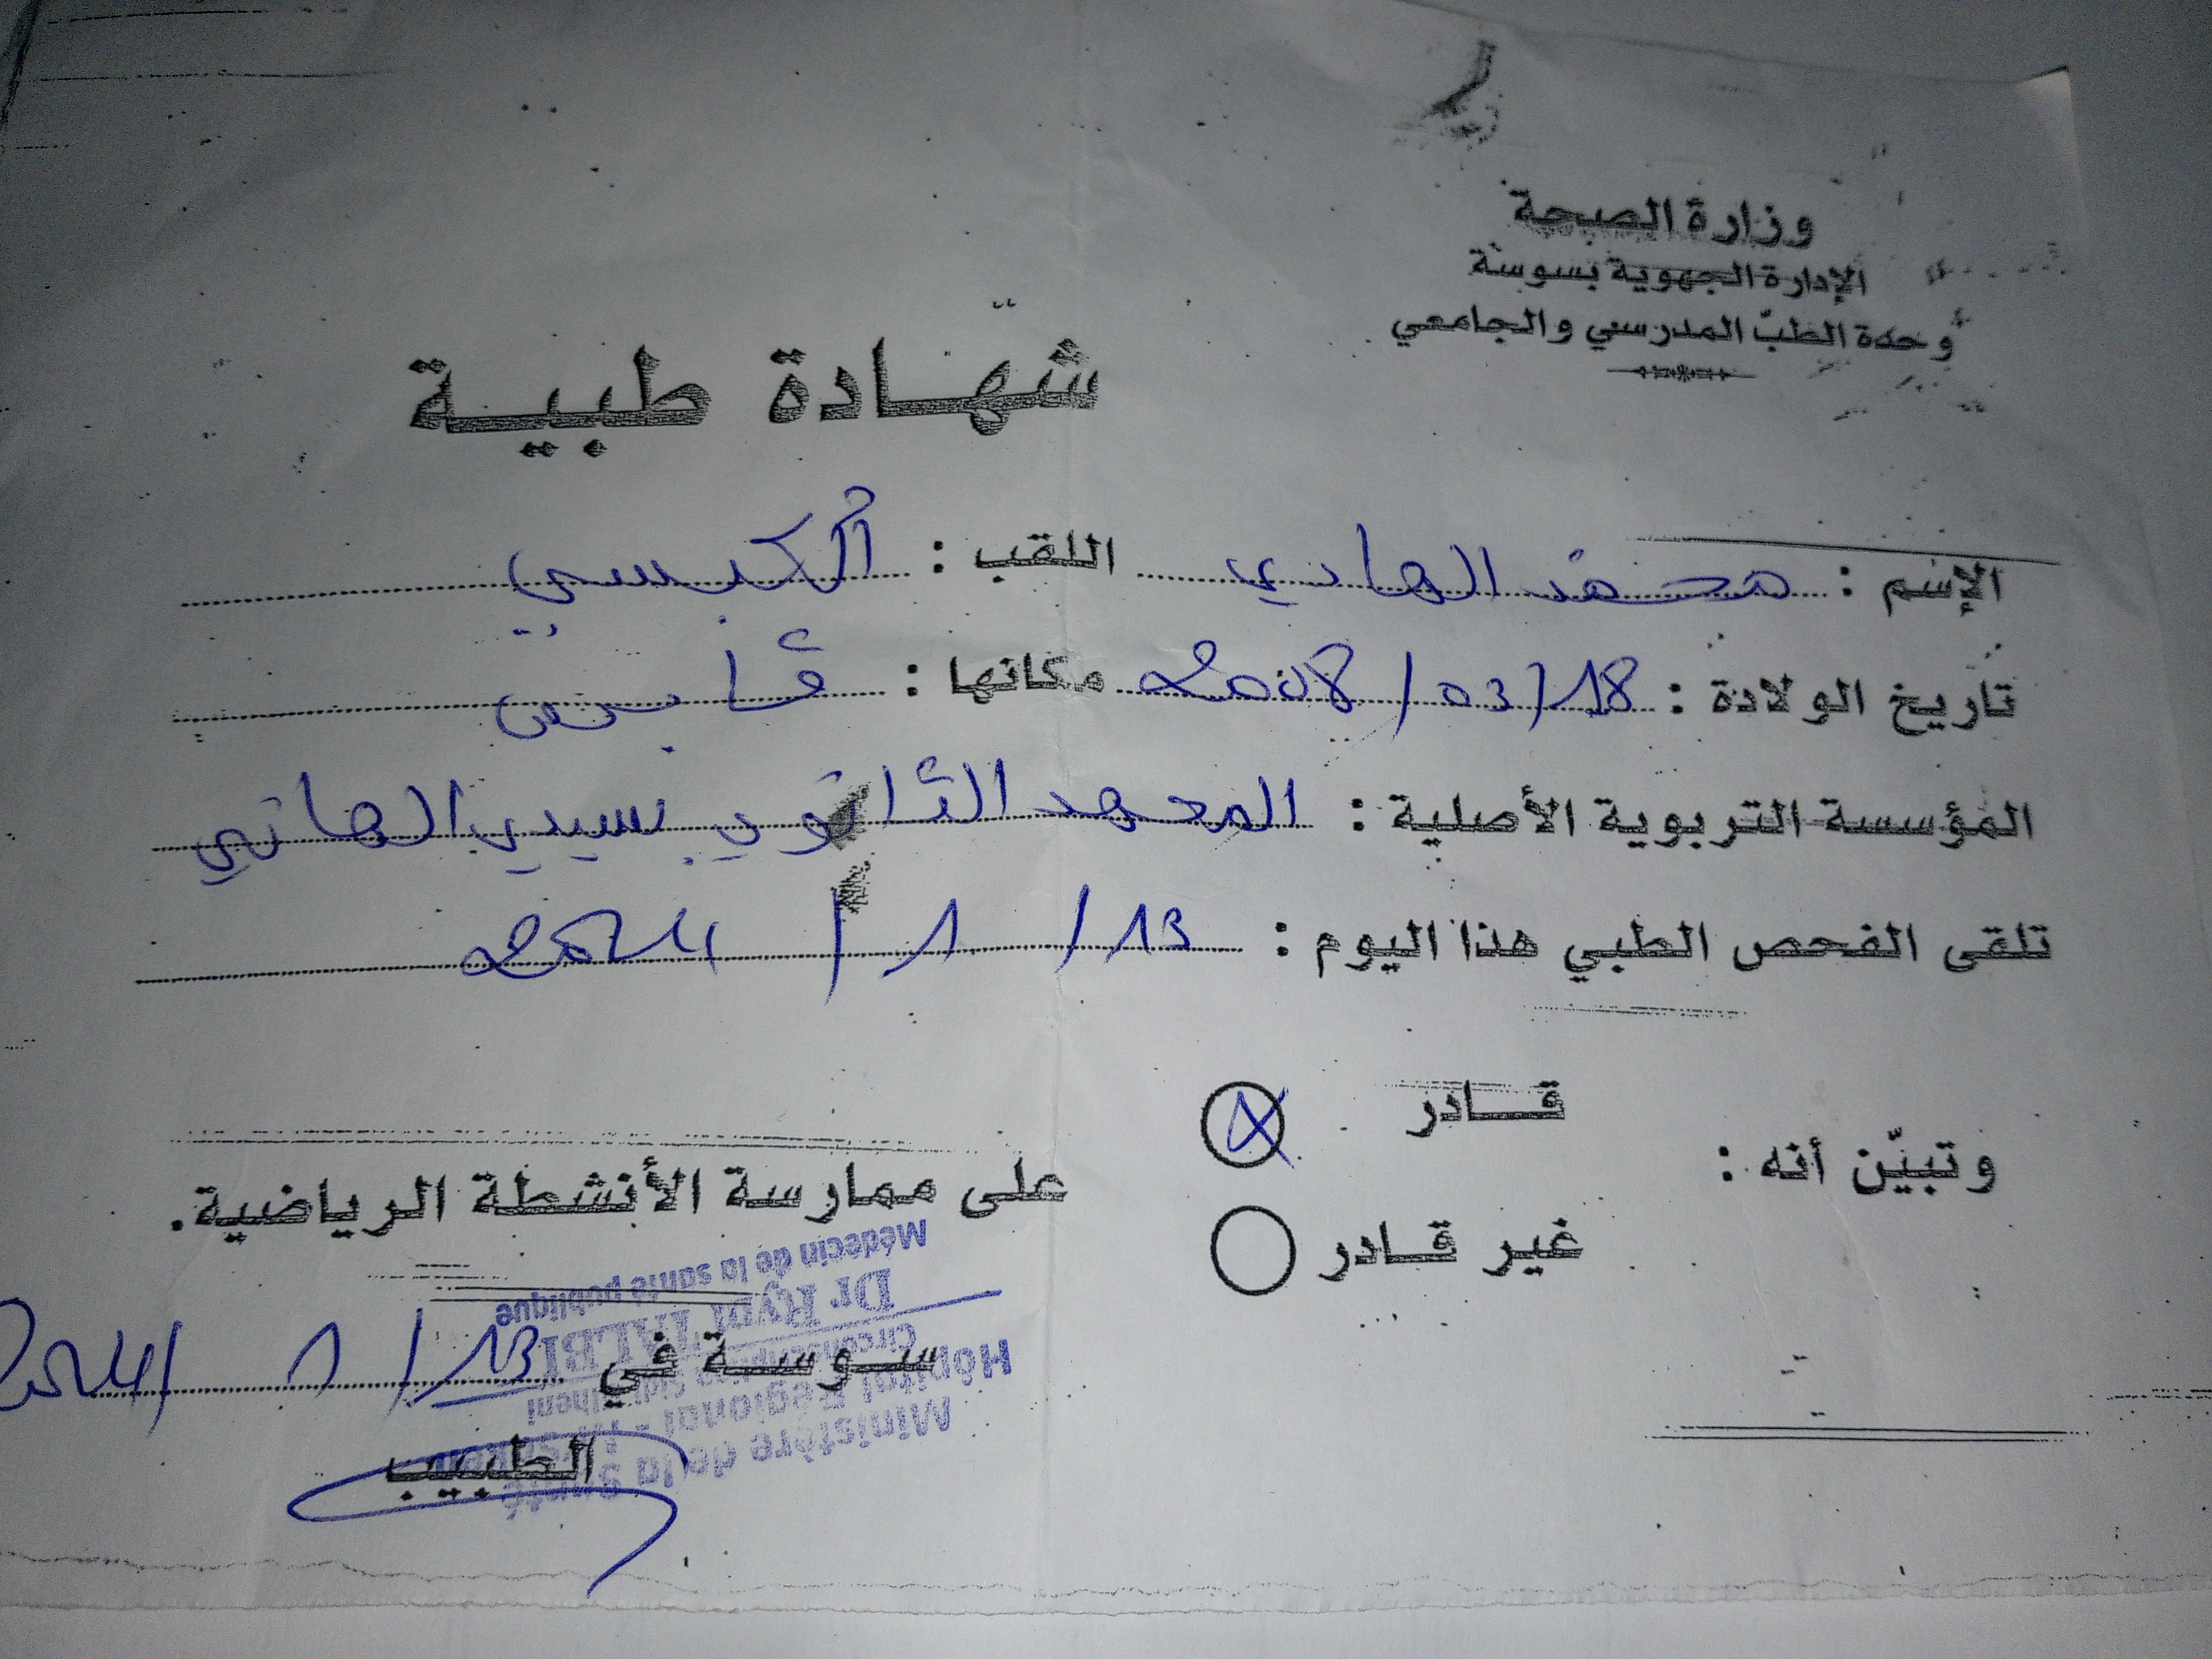 وزارة الصحة
الإدارة الجهوية بسوسة
وحدة الطبّ المدرسي والجامعي
شهادة طبية
الإسم : محمد الهادي اللقب : الكبسي
تاريخ الولادة : 18/03/2008 مكانها : قابس
المؤسسة التربوية الأصلية : المعهد الثانوي بسيدي الهاني
تلقى الفحص الطبي هذا اليوم : 13/1/2024
وتبيّن أنه :
قادر
غير قادر
على ممارسة الأنشطة الرياضية.
سوسة في 13/1/2024
الطبيب
Ministère de la Santé
Hôpital Régional
Circonscription Sidi Elheni
Dr TALBI
Médecin de la santé publique